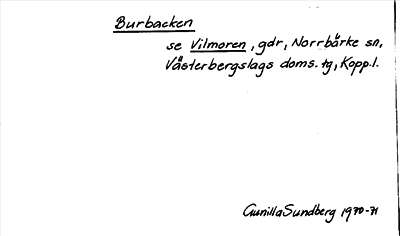 Burbacken
se Vilmoren, gdr, Norrbärke sn,
Västerbergslags doms. tg, Kopp. l.
Gunilla Sundberg 1970-71